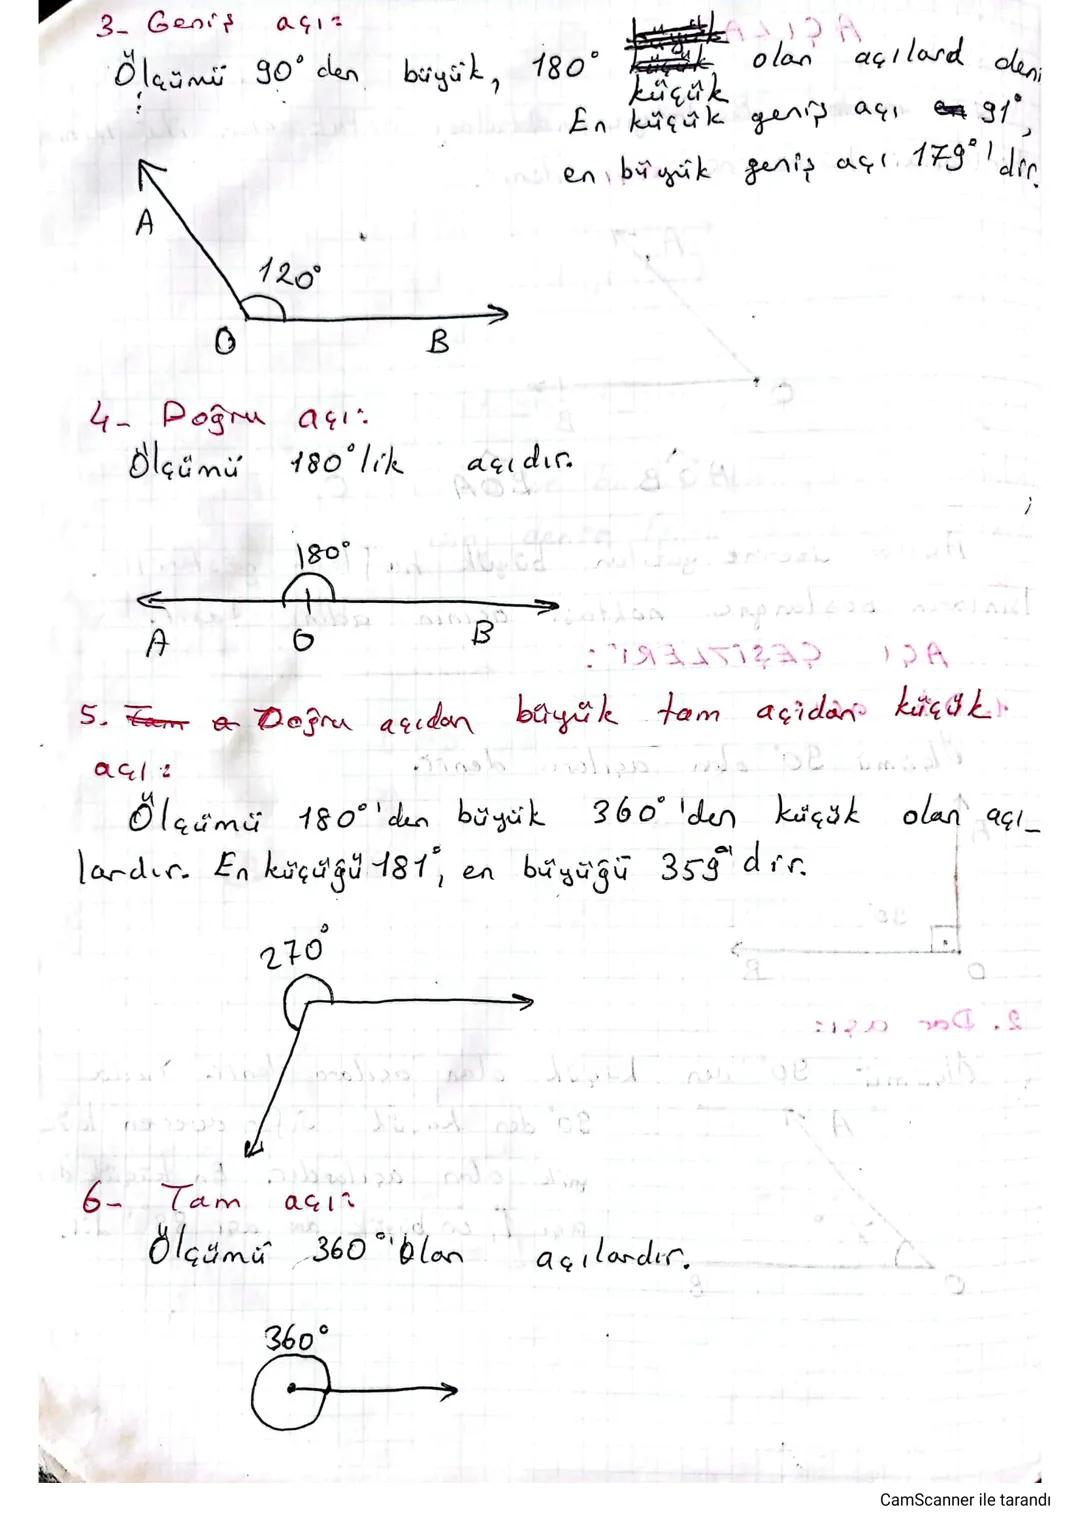 3- Geniş açı:
Ölçümü 90° den büyük, 180° küçük olan açılard deni
En küçük geniş açı 91°,
en büyük geniş açı 179°'dir.
A
120°
O
B
4- Doğru açı:
Ölçümü 180°lik açıdır.
180°
A
O
B
5. Doğru açıdan büyük tam açidan küçük
açı:
Ölçümü 180°'den büyük 360°'den küçük olan açı-
lardır. En küçüğü 181°, en büyüğü 359°'dir.
270°
6- Tam açı:
Ölçümü 360° olan açılardır.
360°
CamScanner ile tarandı